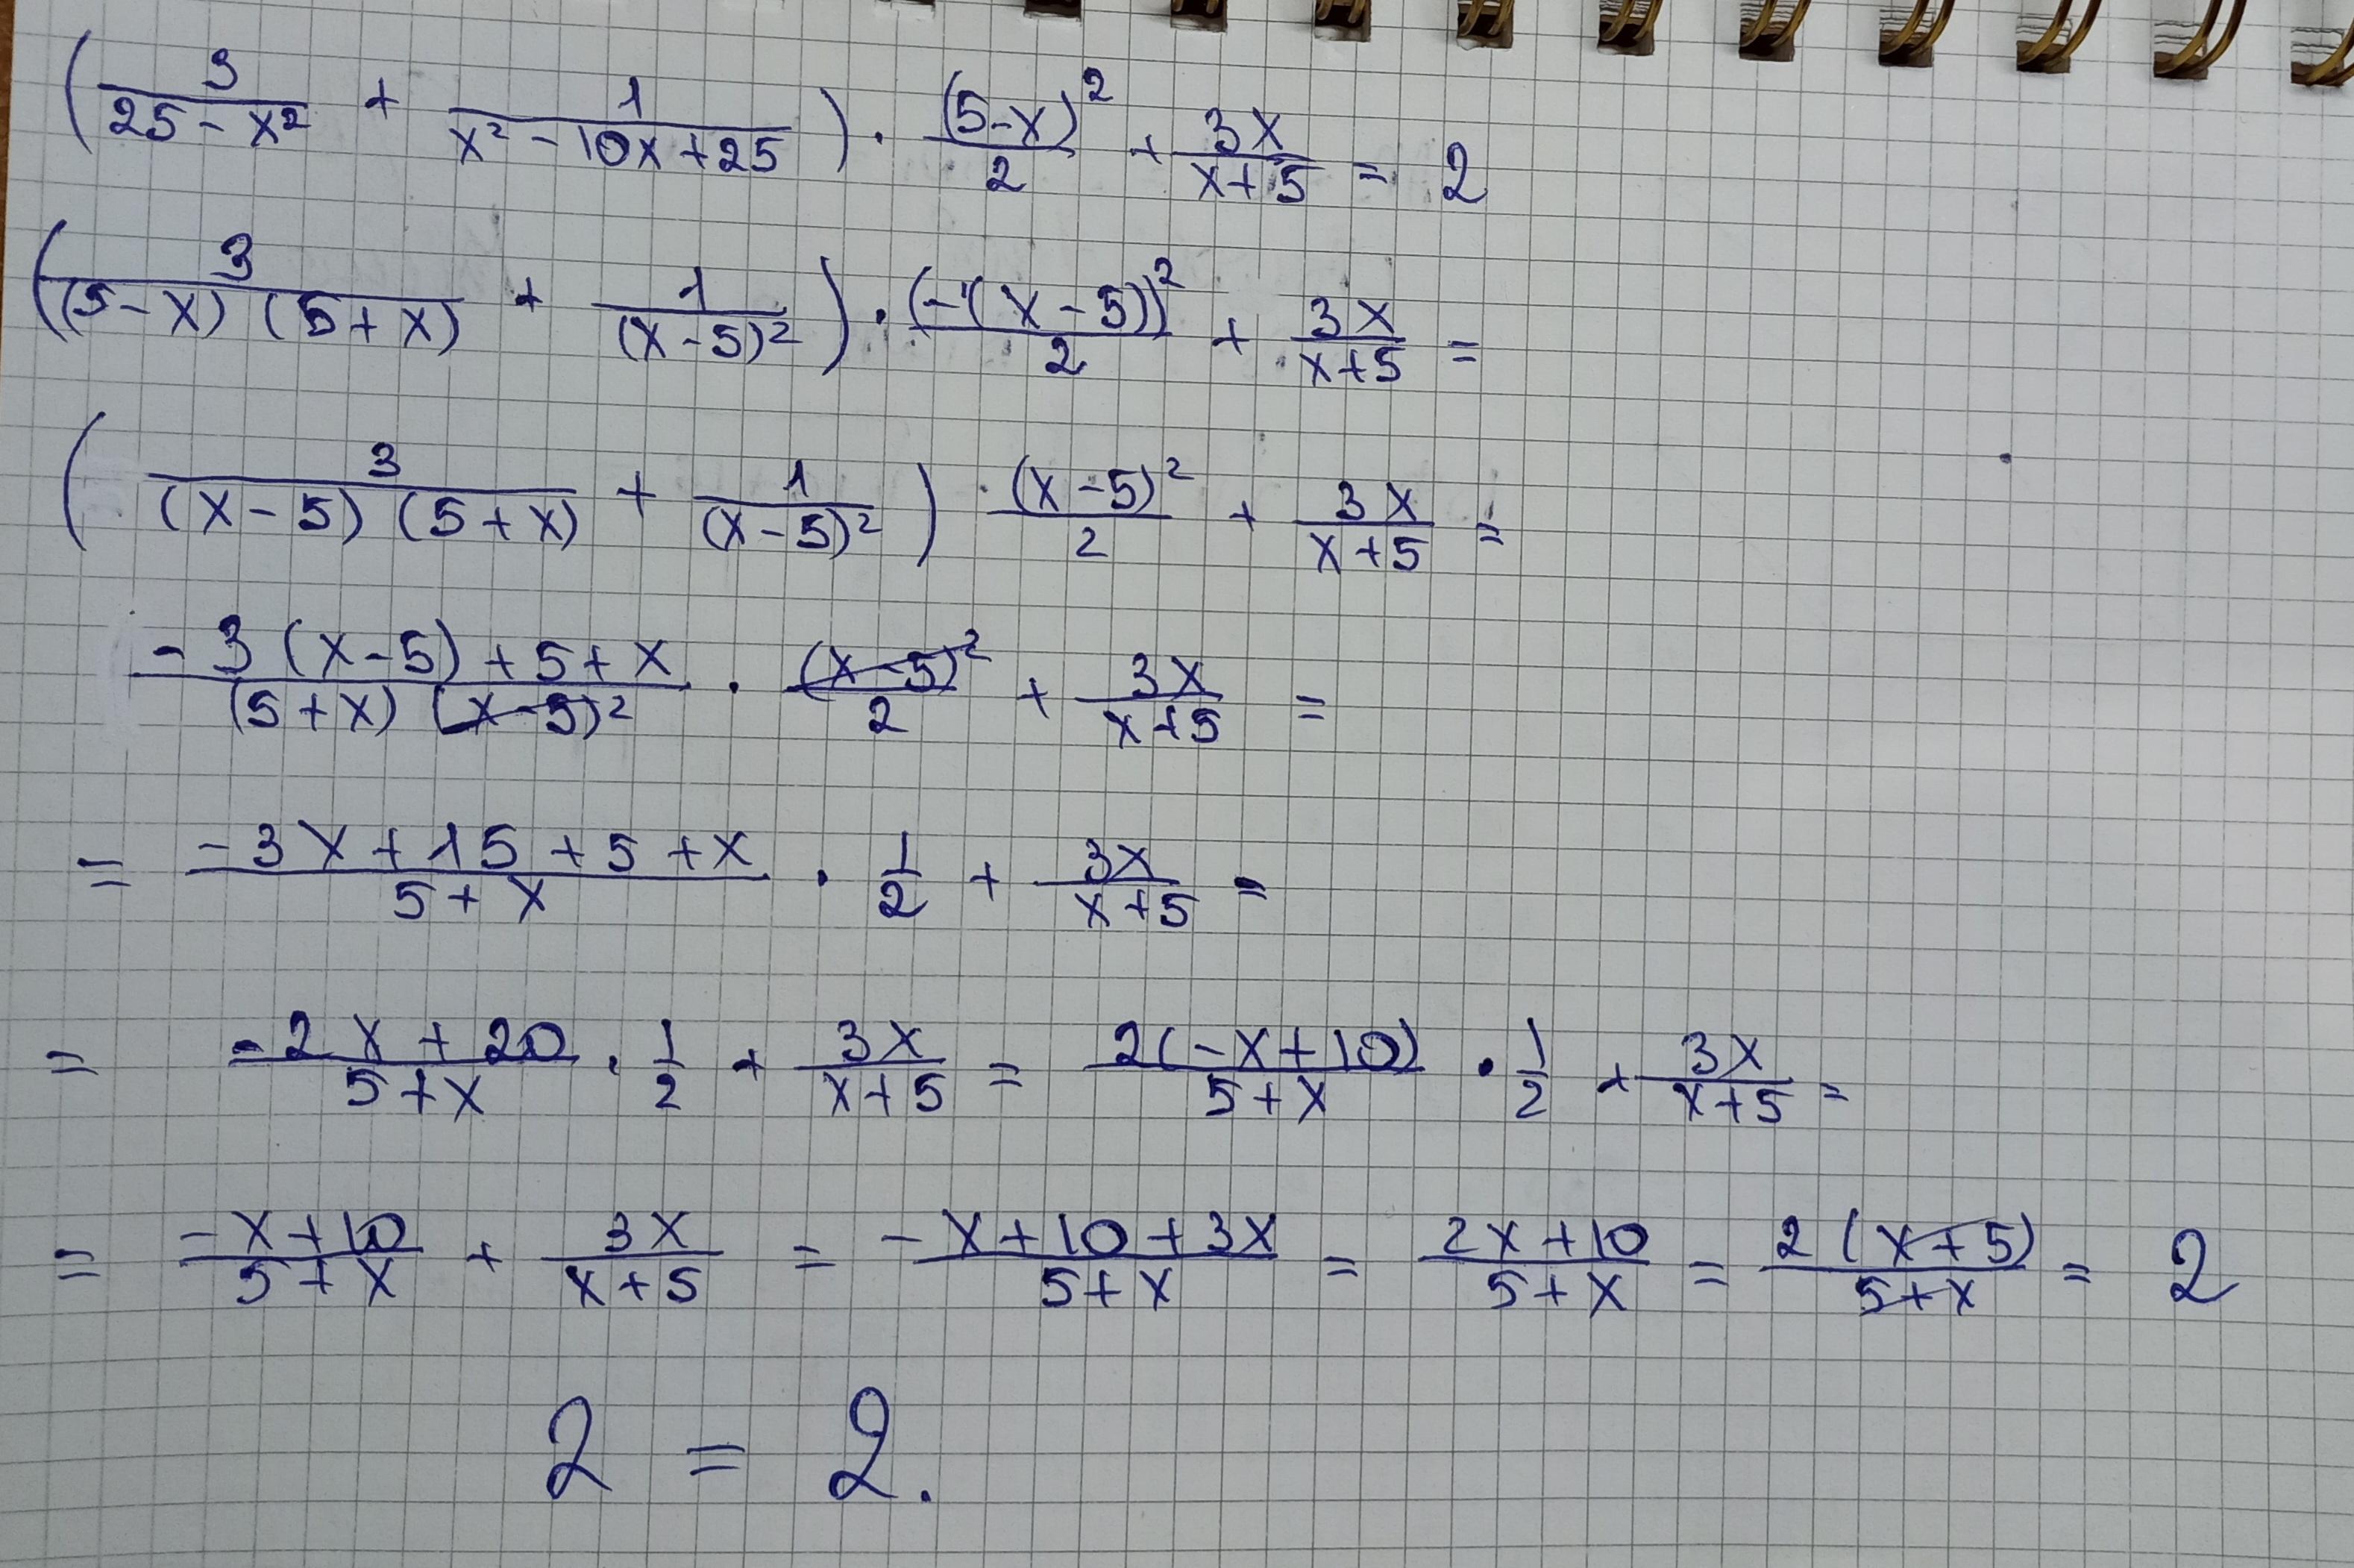 (3/(25 - x²) + 1/(x² - 10x + 25)) · (5-x)²/2 + 3x/(x+5) = 2
(3/((5-x)(5+x)) + 1/(x-5)²) · (-(x-5))²/2 + 3x/(x+5) =
(3/((x-5)(5+x)) + 1/(x-5)²) · (x-5)²/2 + 3x/(x+5) =
(-3(x-5)+5+x)/((5+x)(x-5)²) · (x-5)²/2 + 3x/(x+5) =
= (-3x+15+5+x)/(5+x) · 1/2 + 3x/(x+5) =
= (-2x+20)/(5+x) · 1/2 + 3x/(x+5) = 2(-x+10)/(5+x) · 1/2 + 3x/(x+5) =
= (-x+10)/(5+x) + 3x/(x+5) = (-x+10+3x)/(5+x) = (2x+10)/(5+x) = 2(x+5)/(5+x) = 2
2 = 2.